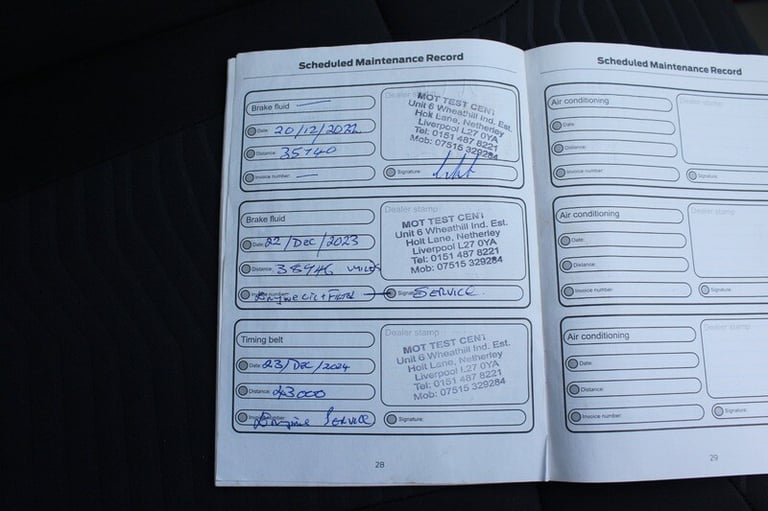 Scheduled Maintenance Record
Brake fluid
Dealer stamp
MOT TEST CENT
Unit 6 Wheathill Ind. Est.
Holt Lane, Netherley
Liverpool L27 0YA
Tel: 0151 487 8221
Mob: 07515 329284
Date: 20/12/2022
Distance: 35740
Invoice number:
Signature:
Brake fluid
Dealer stamp
MOT TEST CENT
Unit 6 Wheathill Ind. Est.
Holt Lane, Netherley
Liverpool L27 0YA
Tel: 0151 487 8221
Mob: 07515 329284
Date: 22/Dec/2023
Distance: 38946 MILES
Engine Oil + Filter
SERVICE.
Timing belt
Dealer stamp
MOT TEST CENT
Unit 6 Wheathill Ind. Est.
Holt Lane, Netherley
Liverpool L27 0YA
Tel: 0151 487 8221
Mob: 07515 329284
Date: 23/Dec/2024
Distance: 43000
Engine SERVICE
Signature:
28
Scheduled Maintenance Record
Air conditioning
Dealer stamp
Date:
Distance:
Invoice number:
Signature:
Air conditioning
Dealer stamp
Date:
Distance:
Invoice number:
Signature:
Air conditioning
Dealer stamp
Date:
Distance:
Invoice number:
Signature:
29